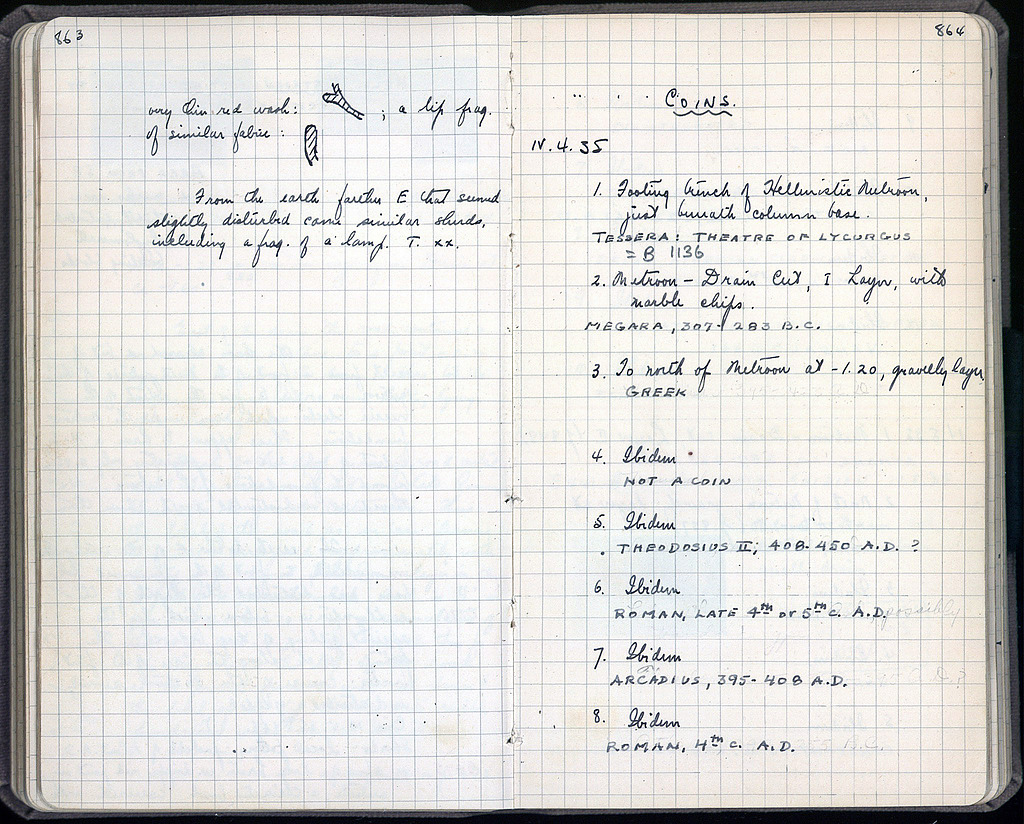 863
very thin red wash: ; a lip frag.
of similar fabric:
From the earth farther E that seemed
slightly disturbed came similar sherds,
including a frag. of a lamp. T. xx.
864
COINS.
IV.4.35
1. Footing trench of Hellenistic Metroon,
just beneath column base.
TESSERA: THEATRE OF LYCURGUS
= B 1136
2. Metroon - Drain Cut, I Layer, with
marble chips.
MEGARA, 307-283 B.C.
3. To north of Metroon at -1.20, gravelly layer
GREEK
4. Ibidem
NOT A COIN
5. Ibidem
THEODOSIUS II; 408-450 A.D. ?
6. Ibidem
ROMAN, LATE 4th or 5th c. A.D. possibly
7. Ibidem
ARCADIUS, 395-408 A.D.
8. Ibidem
ROMAN, 4th c. A.D.